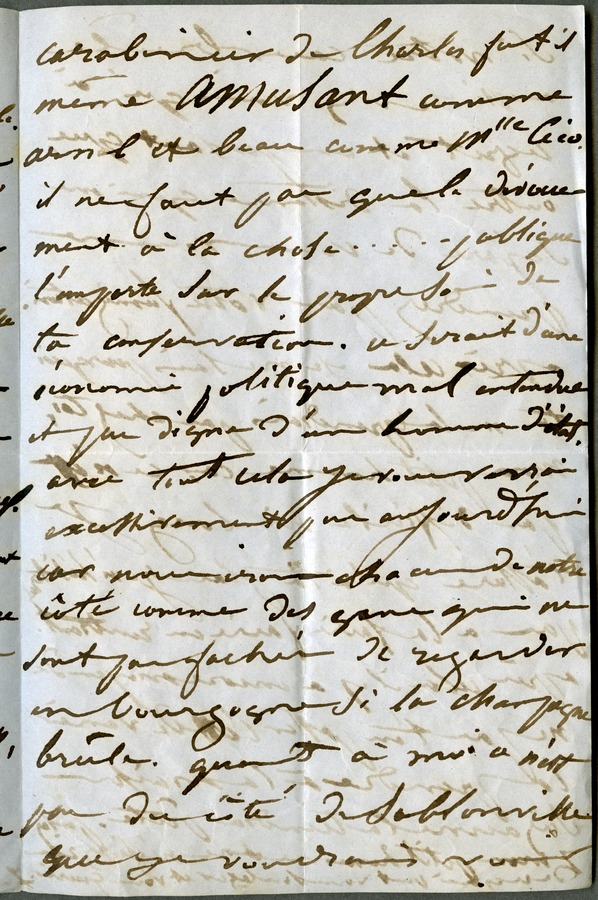 carabinier de Charles fut il
même amusant comme
arnal et beau comme Mlle Cico.
il ne faut pas que le dévoue
ment à la chose ..... publique
l'emporte sur le propre soin de
ta conservation. ce serait d'une
économie politique mal entendue
et peu digne d'un homme d'état.
avec tout cela je vous verrai
excessivement peu aujourd'hui
car nous irons chacun de notre
côté comme des gens qui ne
sont pas fachés de regarder
en bourgogne si la champagne
brûle. quant à moi ce n'est
pas du côté de Sablonville
que je voudrais